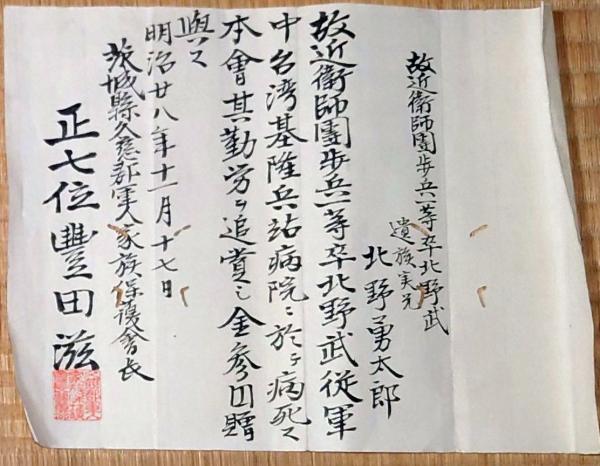 故近衛師團歩兵一等卒北野武
遺族実兄
北野勇太郎
故近衛師團歩兵一等卒北野武従軍
中台湾基隆兵站病院ニ於テ病死ス
本會其勤労ヲ追賞シ金参円贈
與ス
明治廿八年十一月十七日
茨城縣久慈郡軍人家族保護會長
正七位豐田滋